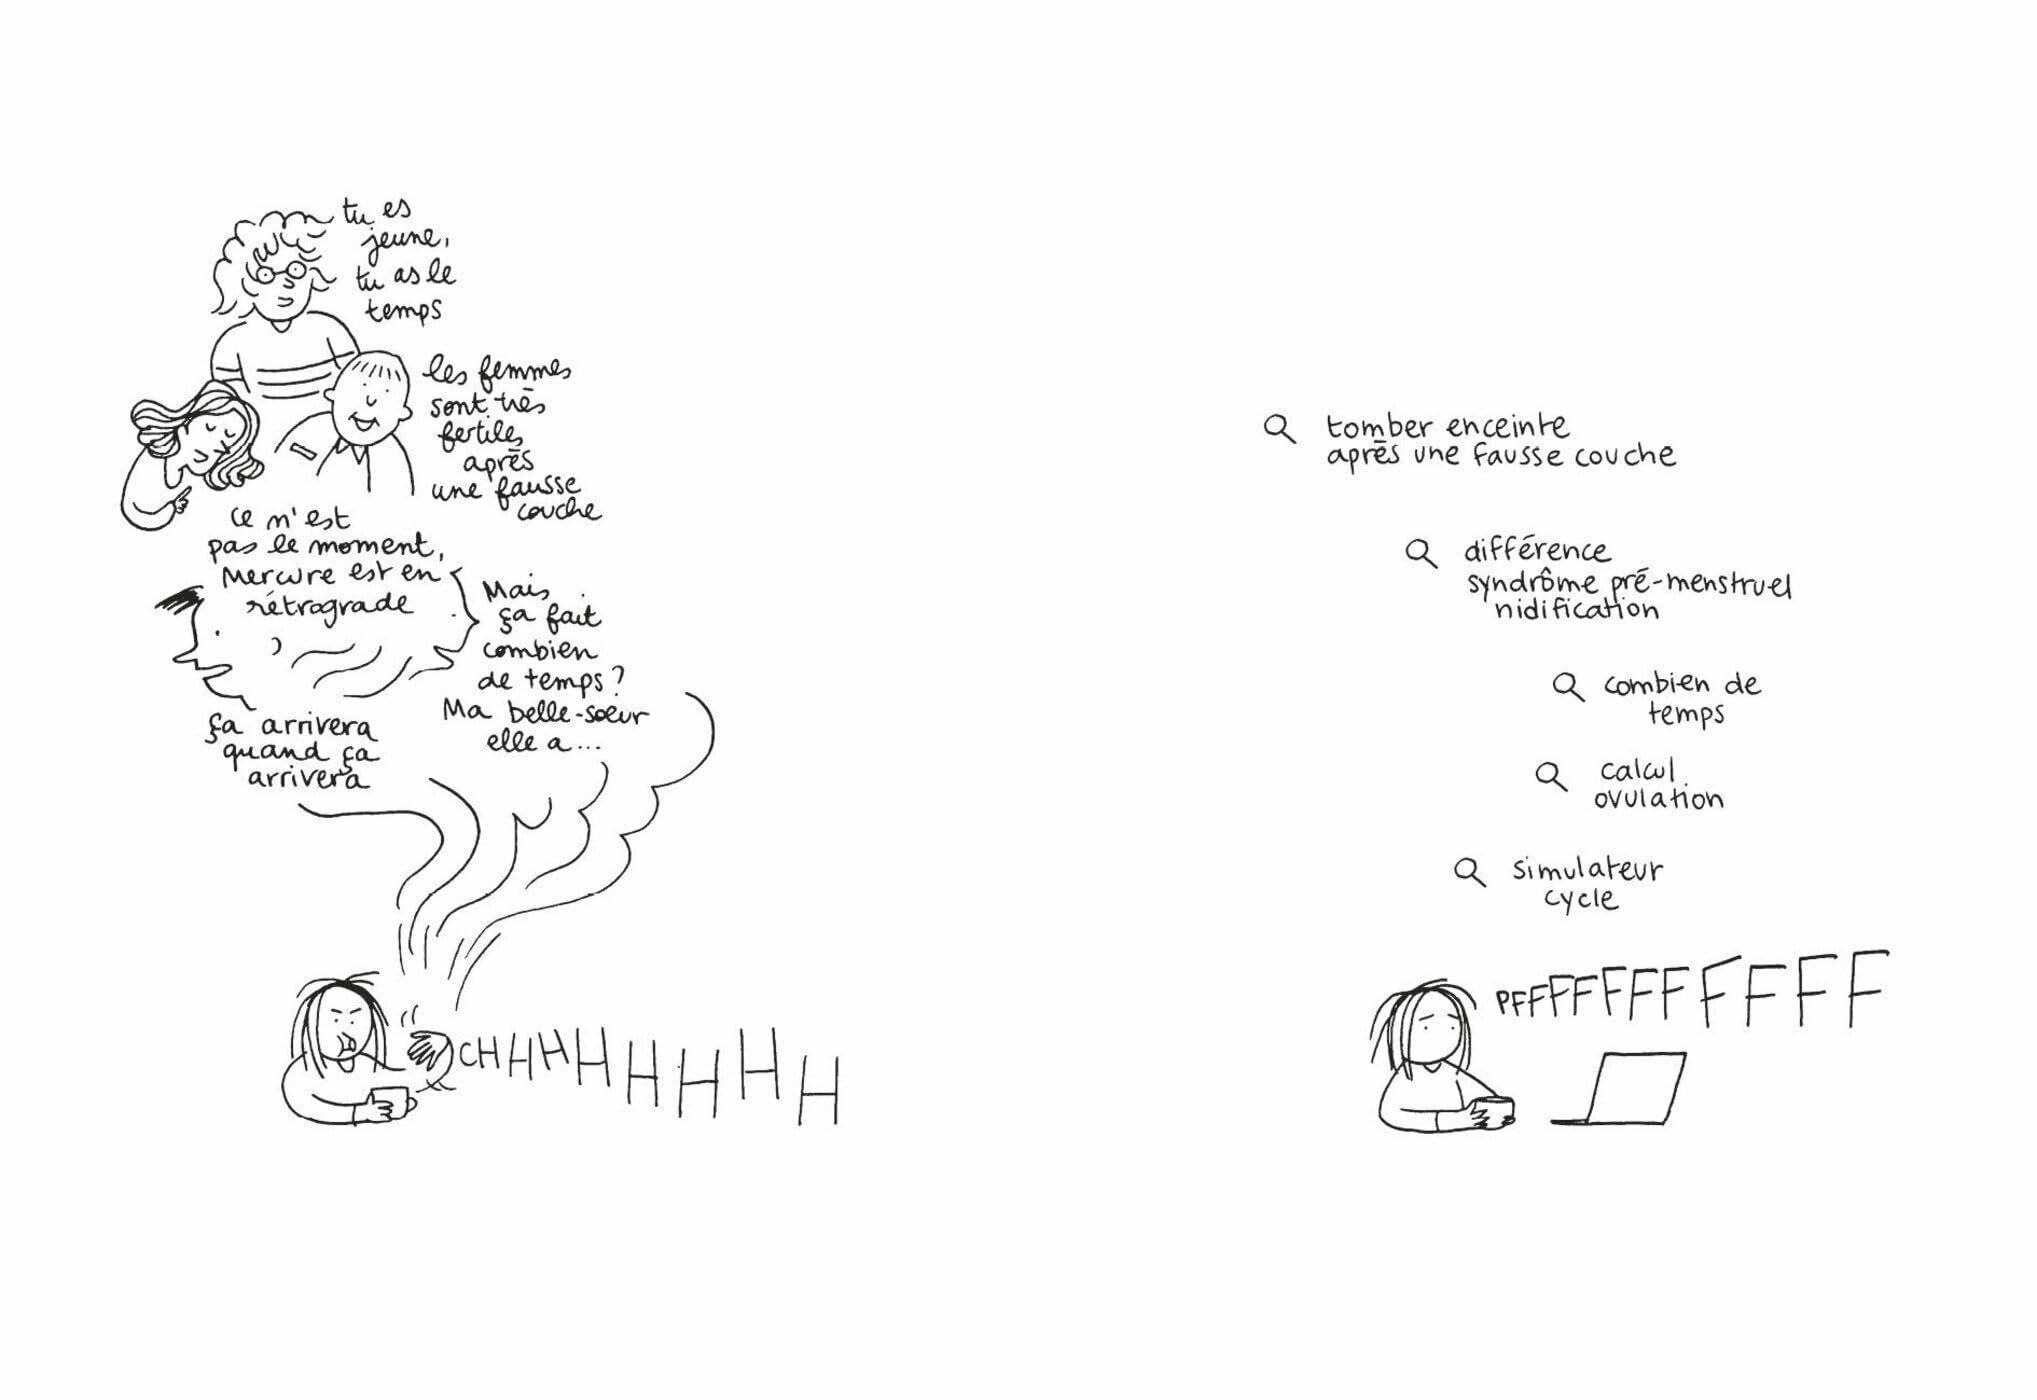 tu es
jeune,
tu as le
temps
les femmes
sont très
fertiles
après
une fausse
couche
ce n'est
pas le moment,
Mercure est en
rétrograde
Mais
ça fait
combien
de temps?
Ma belle-sœur
elle a...
ça arrivera
quand ça
arrivera
CHHHHHHHH
tomber enceinte
après une fausse couche
différence
syndrôme pré-menstruel
nidification
combien de
temps
calcul
ovulation
simulateur
cycle
PFFFFFFFFFFF